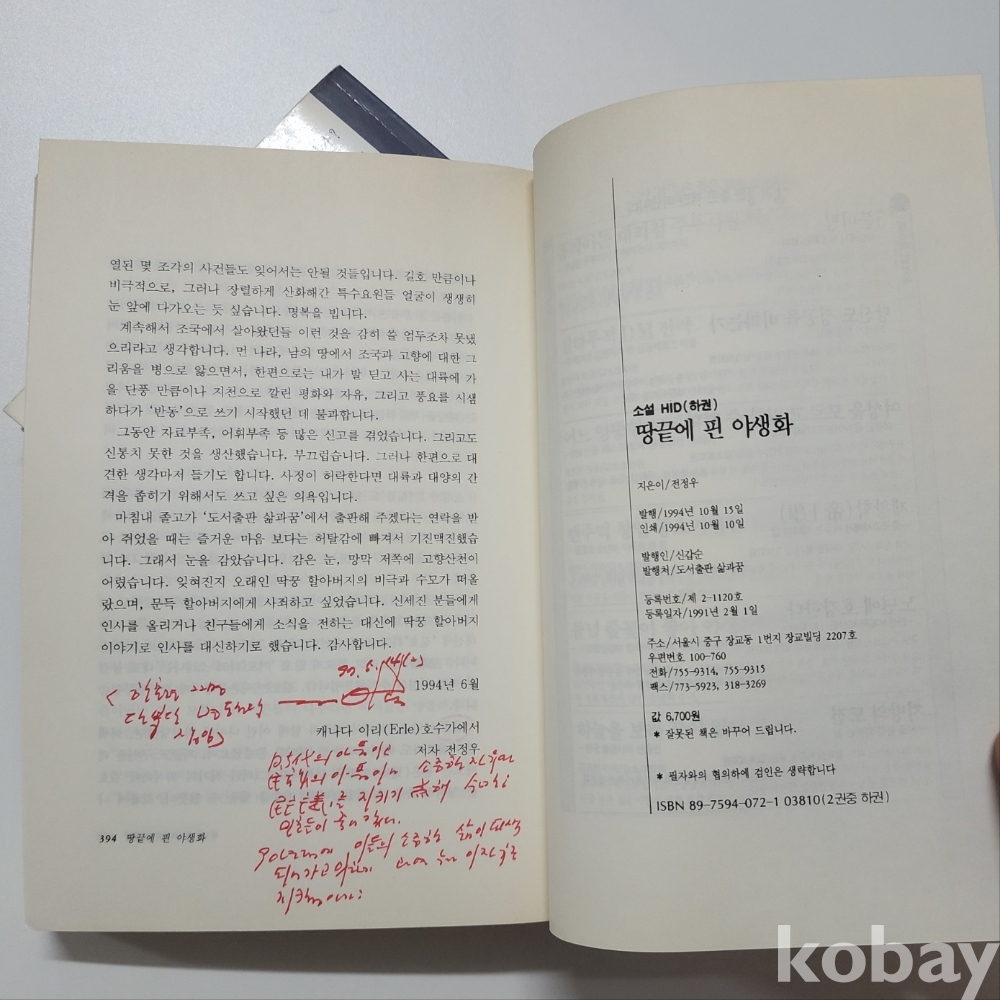 열된 몇 조각의 사건들도 잊어서는 안될 것들입니다. 길호 만큼이나
비극적으로, 그러나 장렬하게 산화해간 특수요원들 얼굴이 생생히
눈 앞에 다가오는 듯 싶습니다. 명복을 빕니다.
계속해서 조국에서 살아왔던들 이런 것을 감히 쓸 엄두조차 못냈
으리라고 생각합니다. 먼 나라, 남의 땅에서 조국과 고향에 대한 그
리움을 병으로 앓으면서, 한편으로는 내가 발 딛고 사는 대륙에 가
을 단풍 만큼이나 지천으로 깔린 평화와 자유, 그리고 풍요를 시샘
하다가 '반동'으로 쓰기 시작했던 데 불과합니다.
그동안 자료부족, 어휘부족 등 많은 신고를 겪었습니다. 그리고도
신통치 못한 것을 생산했습니다. 부끄럽습니다. 그러나 한편으로 대
견한 생각마저 들기도 합니다. 사정이 허락한다면 대륙과 대양의 간
격을 좁히기 위해서도 쓰고 싶은 의욕입니다.
마침내 졸고가 '도서출판 삶과꿈'에서 출판해 주겠다는 연락을 받
아 쥐었을 때는 즐거운 마음 보다는 허탈감에 빠져서 기진맥진했습
니다. 그래서 눈을 감았습니다. 감은 눈, 망막 저쪽에 고향산천이
어렸습니다. 잊혀진지 오래인 딱꿍 할아버지의 비극과 수모가 떠올
랐으며, 문득 할아버지에게 사죄하고 싶었습니다. 신세진 분들에게
인사를 올리거나 친구들에게 소식을 전하는 대신에 딱꿍 할아버지
이야기로 인사를 대신하기로 했습니다. 감사합니다.
1994년 6월
캐나다 이리(Erle)호수가에서
저자 전정우
지키기
394 땅끝에 핀 야생화
소설 HID(하권)
땅끝에 핀 야생화
지은이/전정우
발행/1994년 10월 15일
인쇄/1994년 10월 10일
발행인/신갑순
발행처/도서출판 삶과꿈
등록번호/제 2-1120호
등록일자/1991년 2월 1일
주소/서울시 중구 장교동 1번지 장교빌딩 2207호
우편번호 100-760
전화/755-9314, 755-9315
팩스/773-5923, 318-3269
값 6,700원
* 잘못된 책은 바꾸어 드립니다.
* 필자와의 협의하에 검인은 생략합니다
ISBN 89-7594-072-1 03810(2권중 하권)
kobay